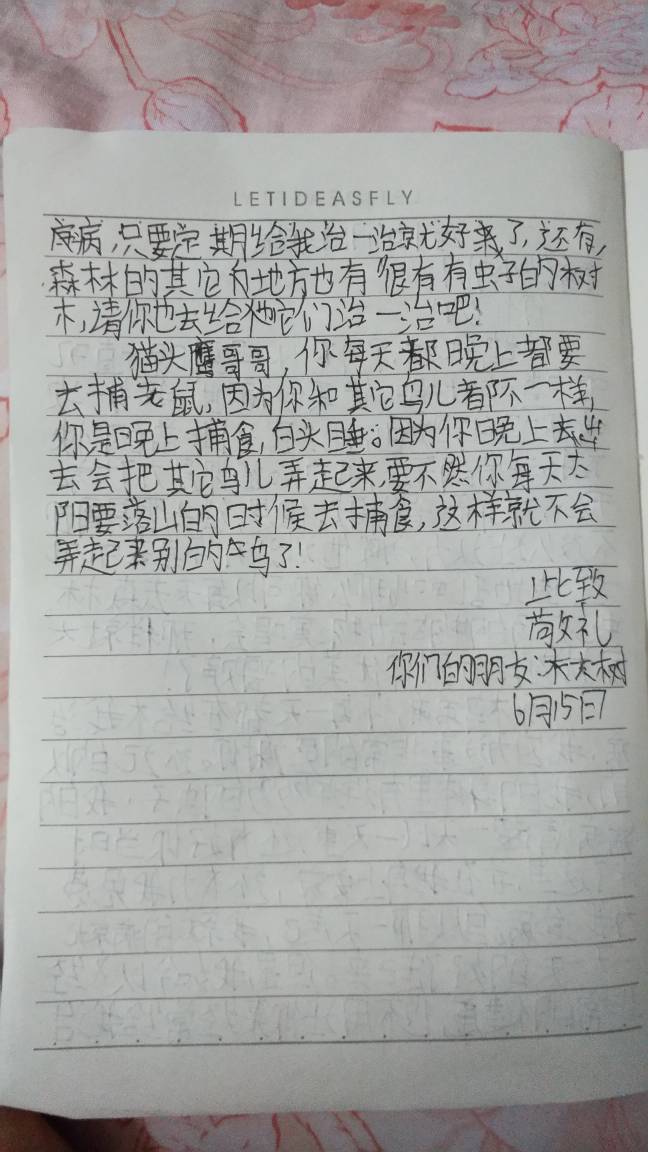 LETIDEASFLY
病,只要定期给我治一治就好了,还有,
森林的其它的地方也有很有有虫子的树
木,请你也去给他它们治一治吧!
猫头鹰哥哥,你每天都晚上都要
去捕老鼠,因为你和其它鸟儿都不一样,
你是晚上捕食,白头睡。因为你晚上去出
去会把其它鸟儿弄走起来,要不然你每天太
阳要落山的时候去捕食,这样就不会
弄走起来别的鸟了!
此致
敬礼
你们的朋友:大树
6月15日